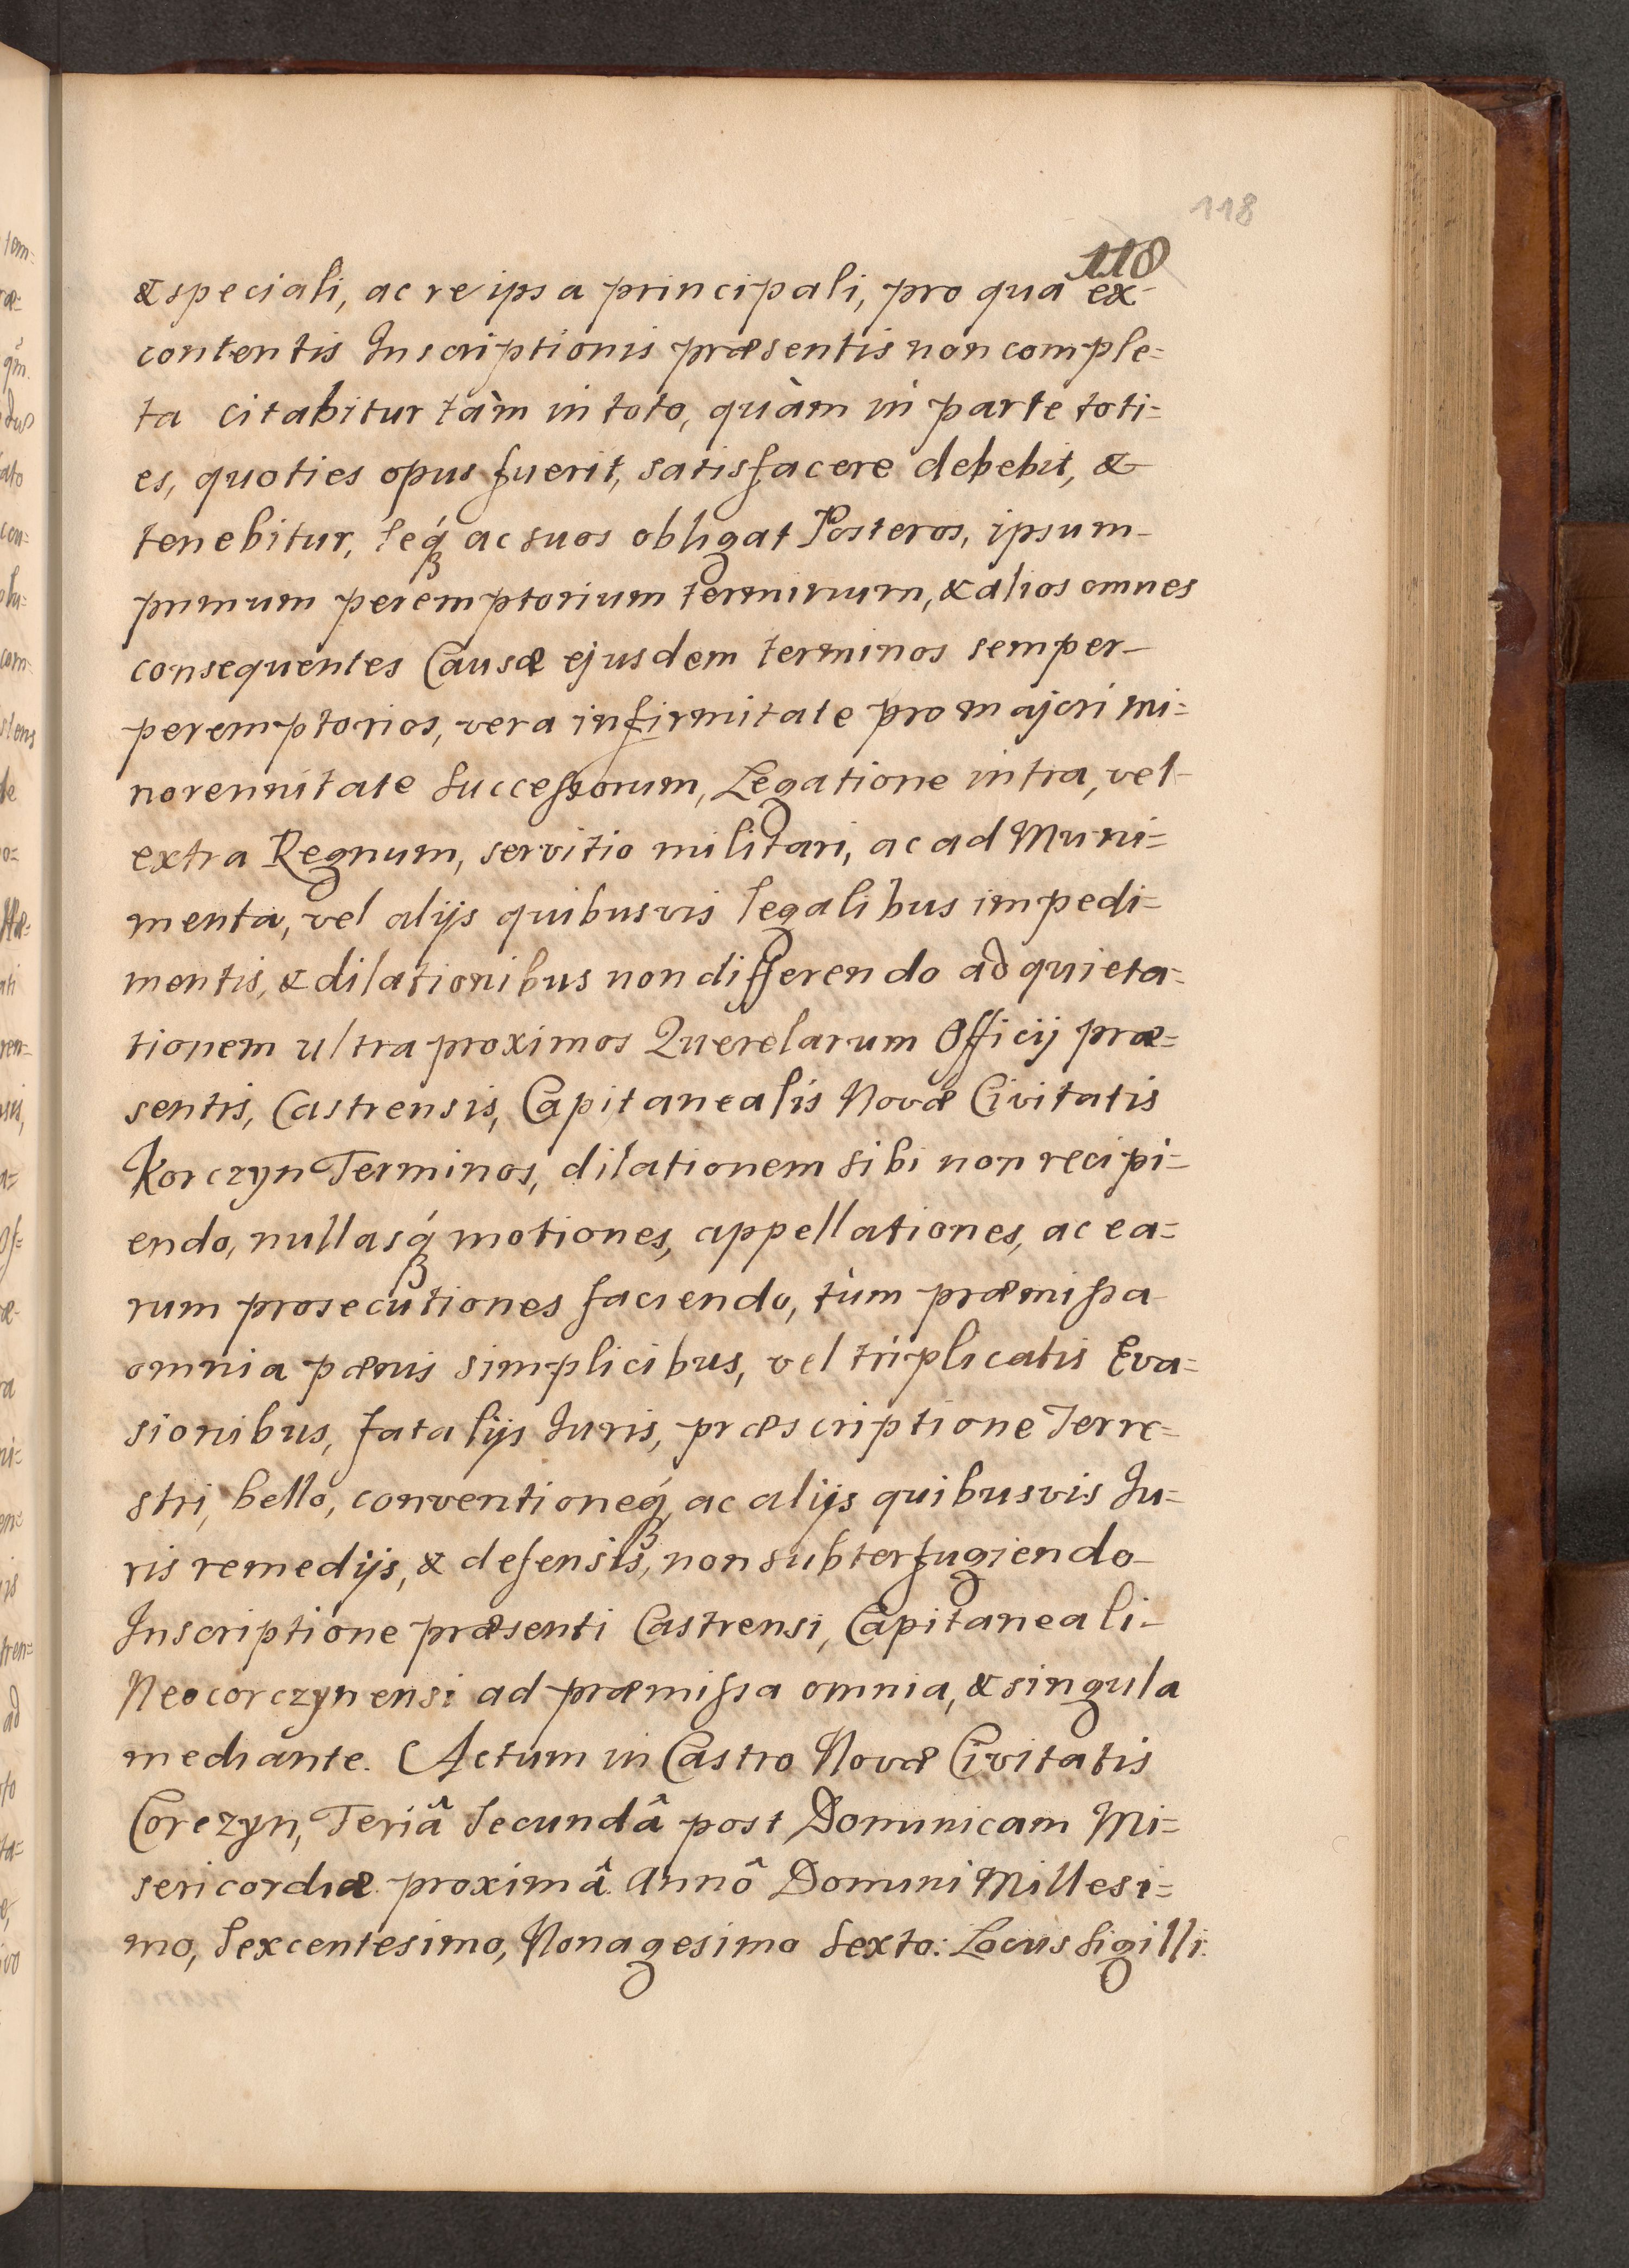 118
118
& speciali, ac re ipsa principali, pro qua ex-
contentis Inscriptionis præsentis non comple=
ta citabitur tàm in toto, quàm in parte toti=
es, quoties opus fuerit, satisfacere debebit, &
tenebitur, seq́ꝫ ac suos obligat Posteros, ipsum-
primum peremptorium terminum, & alios omnes
consequentes Causæ ejusdem terminos semper-
peremptorios, vera infirmitate pro majori mi=
norennitate Successorum, Legatione intra, vel-
extra Regnum, servitio militari, ac ad Muni=
menta, vel alijs quibusvis legalibus impedi=
mentis, & dilationibus non differendo ad quieta=
tionem ultra proximos Querelarum Officij præ=
sentis, Castrensis, Capitanealis Novæ Civitatis
Korczyn Terminos, dilationem sibi non recipi=
endo, nullasq́ꝫ motiones, appellationes, ac ea=
rum prosecutiones faciendo, tùm præmissa
omnia pænis simplicibus, vel triplicatis Eva=
sionibus, fatalijs Juris, præscriptione Terre=
stri, bello, conventioneq́ꝫ, ac alijs quibusvis Ju=
ris remedijs, & defensis, non subterfugiendo-
Inscriptione præsenti Castrensi, Capitaneali-
Neocorczynensi ad præmissa omnia, & singula
mediante. Actum in Castro Novæ Civitatis
Corczyn, Feriâ Secundâ post Dominicam Mi=
sericordiæ proximâ. Annô Domini Millesi=
mo, Sexcentesimo, Nonagesimo Sexto: Locus Sigilli: